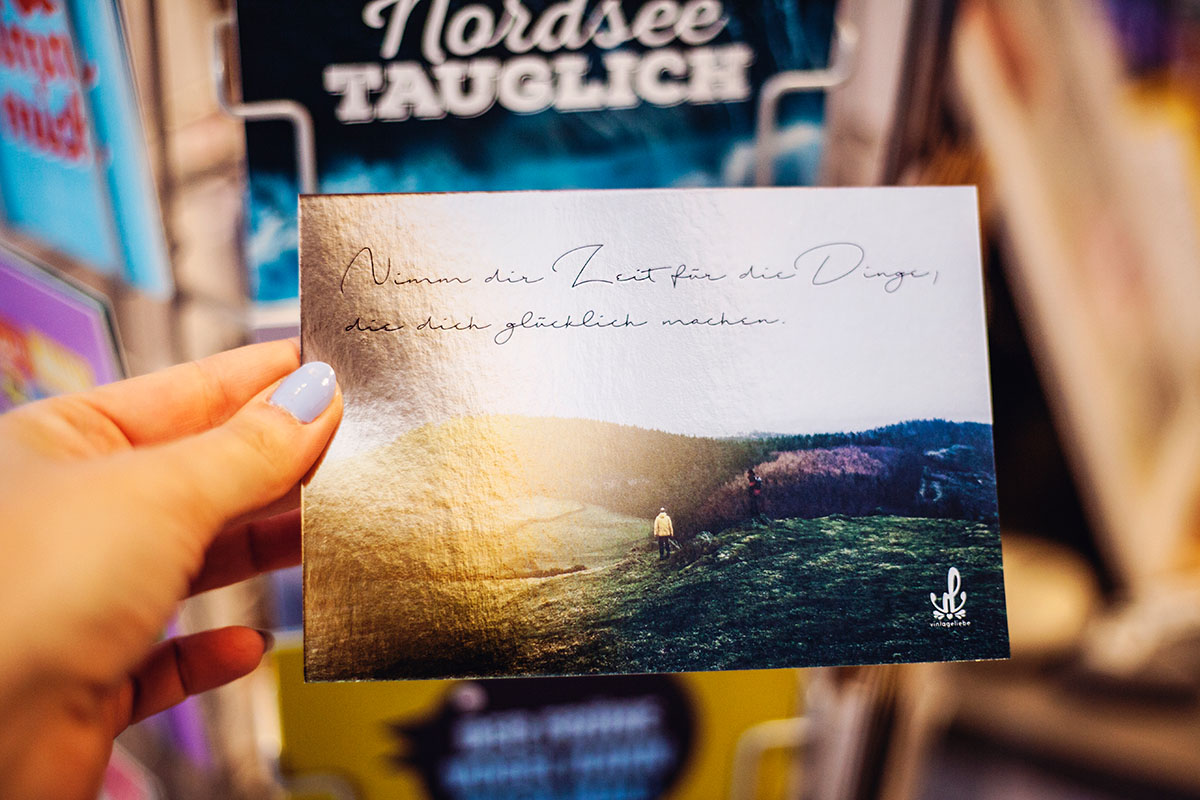 Nordsee
TAUGLICH
mich
Nimm dir Zeit für die Dinge,
die dich glücklich machen.
vintageliebe